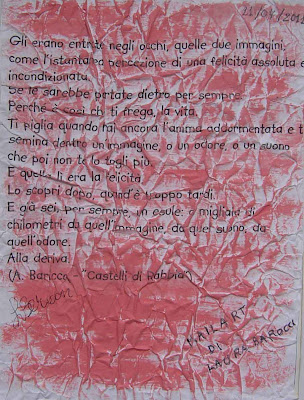 11/04/201
Gli erano entrate negli occhi, quelle due immagini,
come l'istantanea percezione di una felicità assoluta e
incondizionata.
Se le sarebbe portate dietro per sempre.
Perchè è così che ti frega, la vita.
Ti piglia quando hai ancora l'anima addormentata e ti
semina dentro un'immagine, o un odore, o un suono
che poi non te lo togli più.
E quella lì era la felicità.
Lo scopri dopo, quand'è troppo tardi.
E già sei, per sempre, un esule: a migliaia di
chilometri da quell'immagine, da quel suono, da
quell'odore.
Alla deriva.
(A. Baricco - "Castelli di Rabbia")
MAIL ART
DI
LAURA BAROCCI